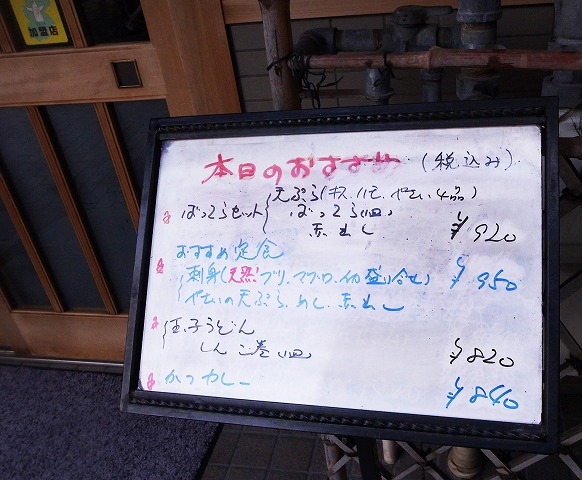 加盟店
本日のおすすめ (税込み)
天ぷら(キス、ハモ、やさい4品)
ばってらセット ばってら1皿
赤出し ¥920
おすすめ定食
刺身(天然ブリ、マグロ、イカ盛り合せ) ¥950
やさいの天ぷら、めし、赤出し
玉子うどん
しんこ巻1皿 ¥820
かつカレー ¥840